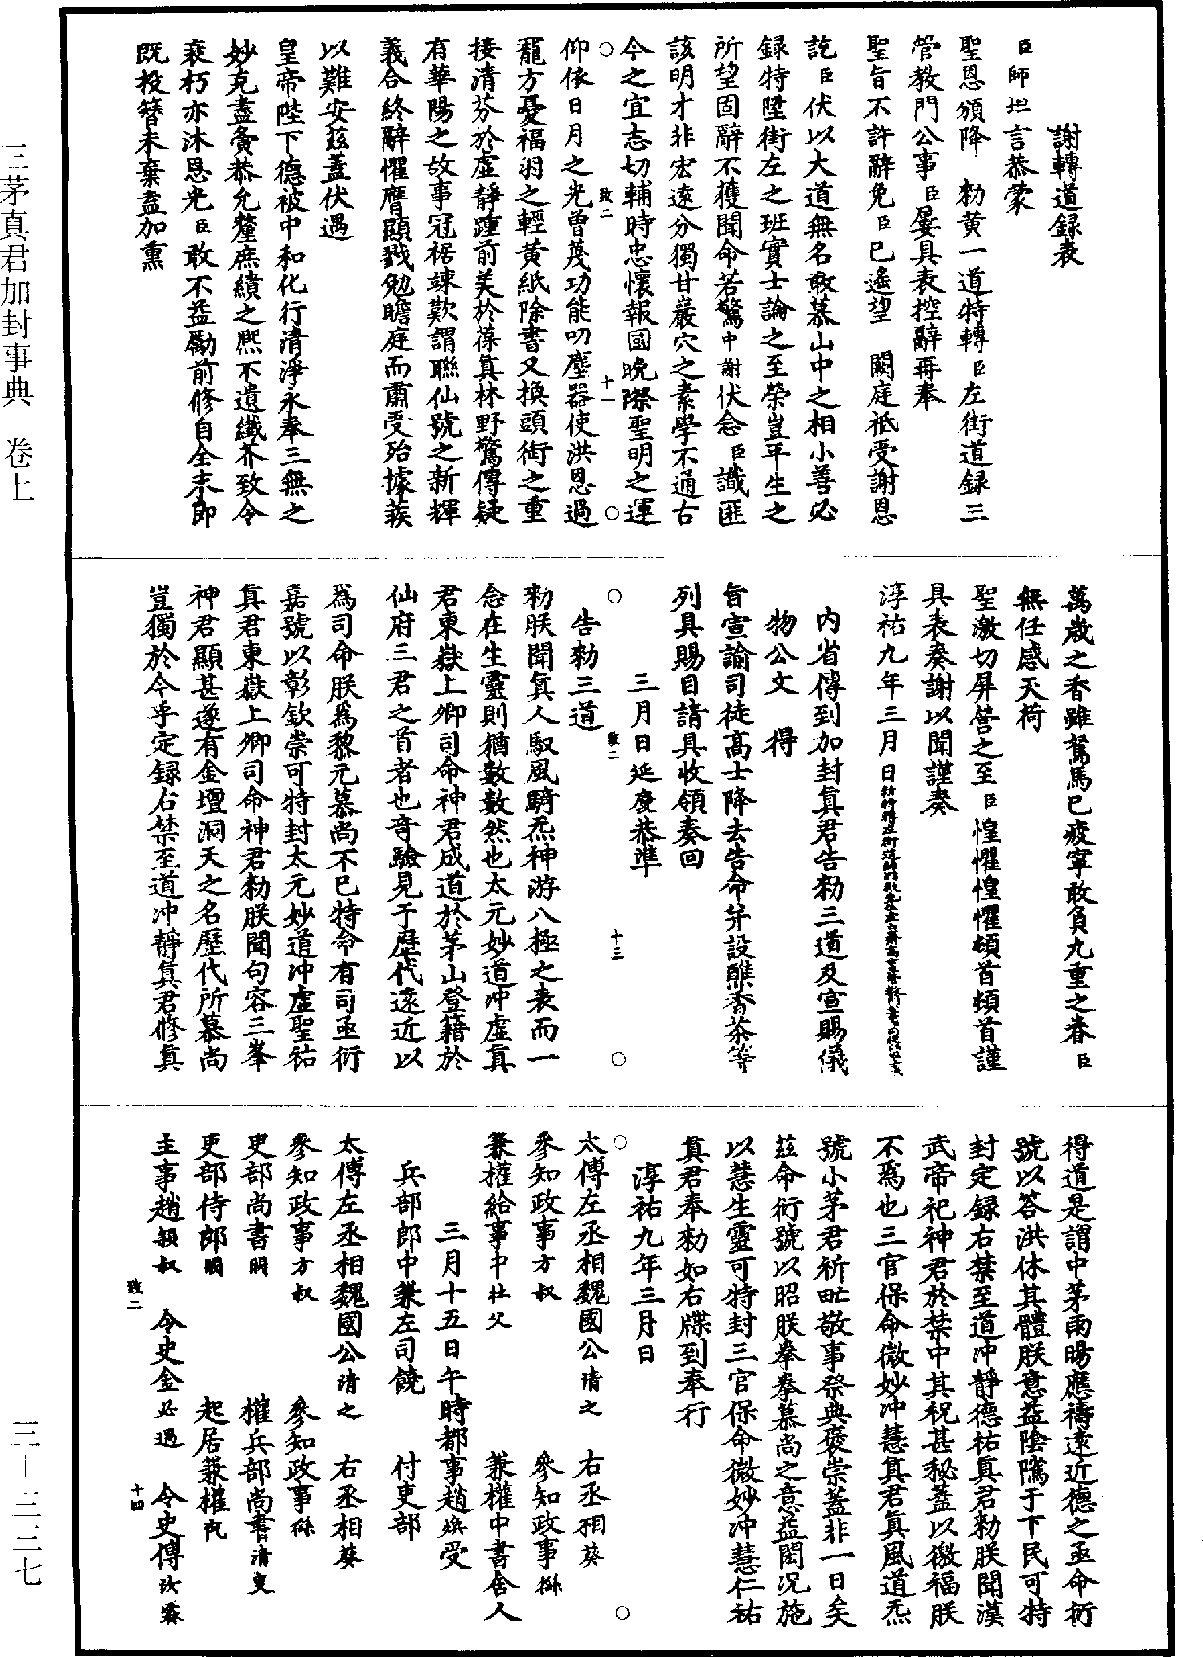 三茅真君加封事典　卷上
謝轉道録表
臣師坦言恭蒙
聖恩頒降　勑黃一道特轉臣左街道録三
管教門公事臣屡具表控辭再奉
聖旨不許辭免臣已遙望　闕庭祗受謝恩
訖臣伏以大道無名敢慕山中之相小善必
録特陞街左之班實士論之至榮豈平生之
所望固辭不獲聞命若驚中謝伏念臣識匪
該明才非宏遠分獨甘巖穴之素學不通古
今之宜志切輔時忠懷報國晚際聖明之運
仰依日月之光曾蔑功能叨塵器使洪恩過
寵方憂福羽之輕黃紙除書又換頭銜之重
接清芬於虛靜踵前美於葆真林野驚傳疑
有華陽之故事冠裾竦歎謂聯仙號之新輝
義合終辭懼膺顯戮勉瞻庭而肅受殆據蒺
以難安茲蓋伏遇
皇帝陛下德被中和化行清淨永奉三無之
妙克盡夤恭允釐庶績之熙不遺纖芥致令
衰朽亦沐恩光臣敢不益勵前修自全末節
既投簪未棄益加熏
致二　十一
萬歲之香雖駑馬已疲寧敢負九重之眷臣
無任感天荷
聖激切屏營之至臣惶懼惶懼頓首頓首謹
具表奏謝以聞謹奏
淳祐九年三月日
內省傳到加封真君告勑三道及宣賜儀
物公文　得
旨宣諭司徒高士降去告命并設醮香茶等
列具賜目請具收領奏回
三月日延慶恭準
告勑三道
勑朕聞真人馭風騎炁神游八極之表而一
念在生靈則猶數數然也太元妙道沖虛真
君東嶽上卿司命神君成道於茅山登籍於
仙府三君之首者也奇驗見于歷代遠近以
為司命朕為黎元慕尚不已特命有司亟衍
嘉號以彰欽崇可特封太元妙道沖虛聖祐
真君東嶽上卿司命神君勑朕聞句容三峯
神君顯甚遂有金壇洞天之名歷代所慕尚
豈獨於今乎定録右禁至道沖靜真君修真
致二　十三
得道是謂中茅雨暘應禱遠近德之亟命衍
號以答洪休其體朕意益陰隲于下民可特
封定録右禁至道沖靜德祐真君勑朕聞漢
武帝祀神君於禁中其祝甚秘蓋以徼福朕
不為也三官保命微妙沖慧真君真風道炁
號小茅君祈甿敬事祭典褒崇蓋非一日矣
茲命衍號以昭朕拳拳慕尚之意益閎況施
以慧生靈可特封三官保命微妙沖慧仁祐
真君奉勑如右牒到奉行
淳祐九年三月日
太傅左丞相魏國公清之　右丞相葵
參知政事方叔　參知政事
兼權給事中杜父　兼權中書舍人
三月十五日午時都事趙　受
兵部郎中兼左司饒　付吏部
太傅左丞相魏國公清之　右丞相葵
參知政事方叔　參知政事
吏部尚書闕　權兵部尚書清叟
吏部侍郎闕　起居兼權
主事趙　叔　令史金必遇　令史傅汝霖
致二　十四
三—三三七